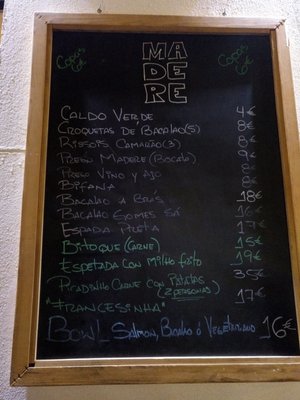 Copas 6€
MA
DE
RE
Copas 6€
CALDO VERDE 4€
CROQUETAS DE BACALAO(5) 8€
RISSOIS CAMARÃO(3) 8€
PREGO MADERE (BOCATA) 9€
PREGO VINO Y AJO 8€
BIFANA 8€
BACALAO A BRÁS 18€
BACALAO GOMES SÁ 16€
ESPADA PRETA 17€
BITOQUE (CARNE) 15€
ESPETADA CON MILHO FRITO 19€
PICADINHO CARNE CON PATATAS (2 PERSONAS) 35€
"FRANCESINHA" 17€
BOWL SALMON, BACALAO ó VEGETARIANO 16€